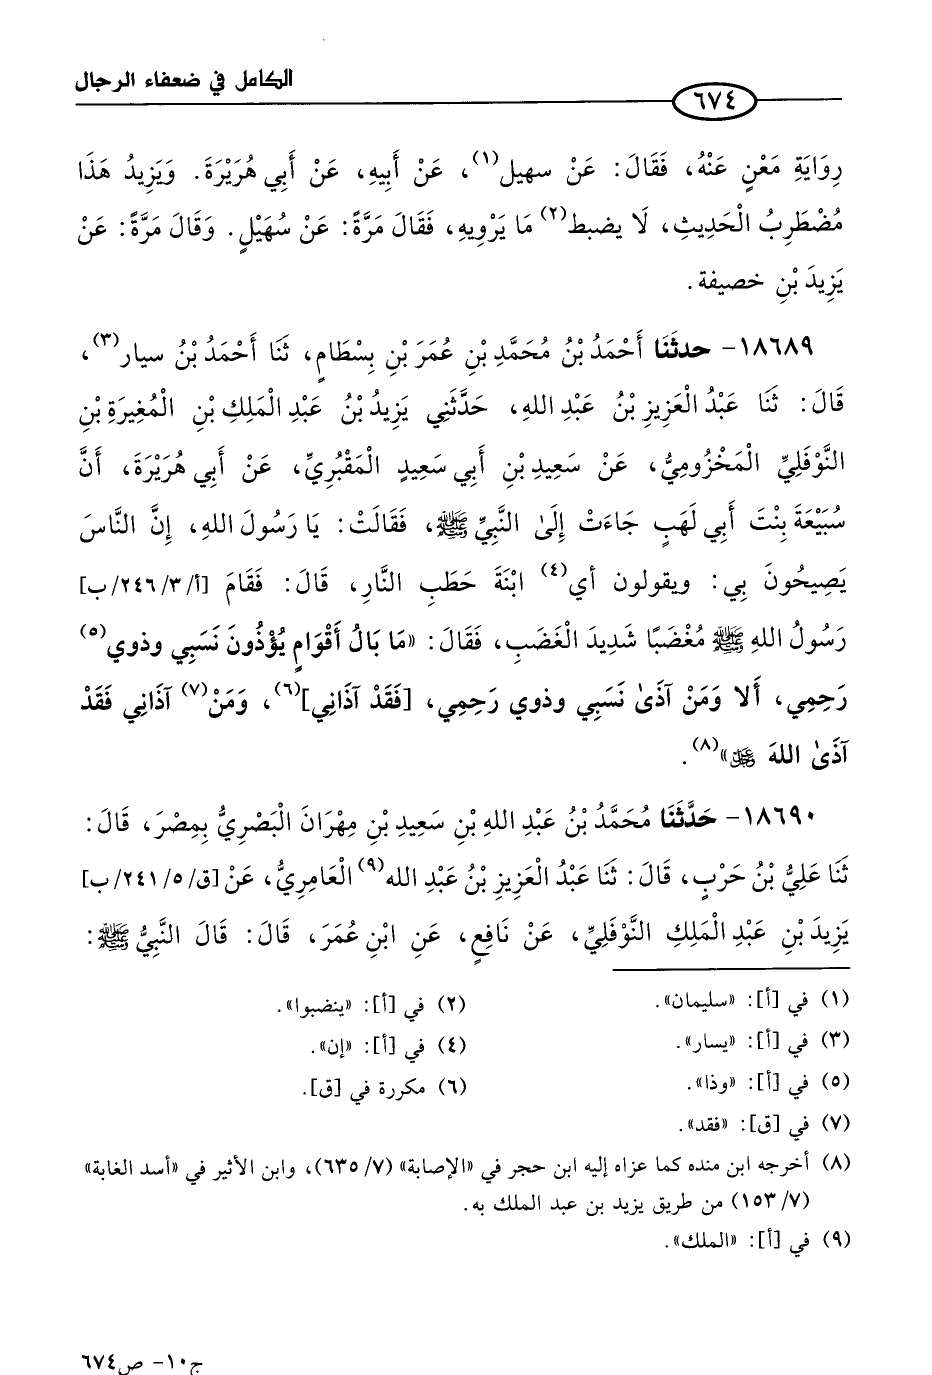 الكامل في ضعفاء الرجال
٦٧٤
رِوَايَةِ مَعْنٍ عَنْهُ، فَقَالَ: عَنْ سهيل(١)، عَنْ أَبِيهِ، عَنْ أَبِي هُرَيْرَةَ. وَيَزِيدُ هَذَا
مُضْطَرِبُ الْحَدِيثِ، لَا يضبط(٢) مَا يَرْوِيهِ، فَقَالَ مَرَّةً: عَنْ سُهَيْلٍ. وَقَالَ مَرَّةً: عَنْ
يَزِيدَ بْنِ خصيفة.
١٨٦٨٩- حدثنَا أَحْمَدُ بْنُ مُحَمَّدِ بْنِ عُمَرَ بْنِ بِسْطَامٍ، ثَنَا أَحْمَدُ بْنُ سيار(٣)،
قَالَ: ثَنَا عَبْدُ الْعَزِيزِ بْنُ عَبْدِ اللهِ، حَدَّثَنِي يَزِيدُ بْنُ عَبْدِ الْمَلِكِ بْنِ الْمُغِيرَةِ بْنِ
النَّوْفَلِيِّ الْمَخْزُومِيُّ، عَنْ سَعِيدِ بْنِ أَبِي سَعِيدٍ الْمَقْبُرِيِّ، عَنْ أَبِي هُرَيْرَةَ، أَنَّ
سُبَيْعَةَ بِنْتَ أَبِي لَهَبٍ جَاءَتْ إِلَىٰ النَّبِيِّ ﷺ، فَقَالَتْ: يَا رَسُولَ اللهِ، إِنَّ النَّاسَ
يَصِيحُونَ بِي: ويقولون أي(٤) ابْنَةَ حَطَبِ النَّارِ، قَالَ: فَقَامَ [أ/٢٤٦/٣/ب]
رَسُولُ اللهِ ﷺ مُغْضَبًا شَدِيدَ الْغَضَبِ، فَقَالَ: «مَا بَالُ أَقْوَامٍ يُؤْذُونَ نَسَبِي وذوي(٥)
رَحِمِي، أَلا وَمَنْ آذَىٰ نَسَبِي وذوي رَحِمِي، [فَقَدْ آذَانِي](٦)، وَمَنْ(٧) آذَانِي فَقَدْ
آذَىٰ اللهَ ﷻ»(٨).
١٨٦٩٠- حَدَّثَنَا مُحَمَّدُ بْنُ عَبْدِ اللهِ بْنِ سَعِيدِ بْنِ مِهْرَانَ الْبَصْرِيُّ بِمِصْرَ، قَالَ:
ثَنَا عَلِيُّ بْنُ حَرْبٍ، قَالَ: ثَنَا عَبْدُ الْعَزِيزِ بْنُ عَبْدِ الله(٩) الْعَامِرِيُّ، عَنْ [ق/٢٤١/٥/ب]
يَزِيدَ بْنِ عَبْدِ الْمَلِكِ النَّوْفَلِيِّ، عَنْ نَافِعٍ، عَنِ ابْنِ عُمَرَ، قَالَ: قَالَ النَّبِيُّ ﷺ:
(١) في [أ]: «سليمان».
(٢) في [أ]: «ينضبوا».
(٣) في [أ]: «يسار».
(٤) في [أ]: «إن».
(٥) في [أ]: «وذا».
(٦) مكررة في [ق].
(٧) في [ق]: «فقد».
(٨) أخرجه ابن منده كما عزاه إليه ابن حجر في «الإصابة» (٧/ ٦٣٥)، وابن الأثير في «أسد الغابة»
(٧/ ١٥٣) من طريق يزيد بن عبد الملك به.
(٩) في [أ]: «الملك».
ج١٠- ص٦٧٤